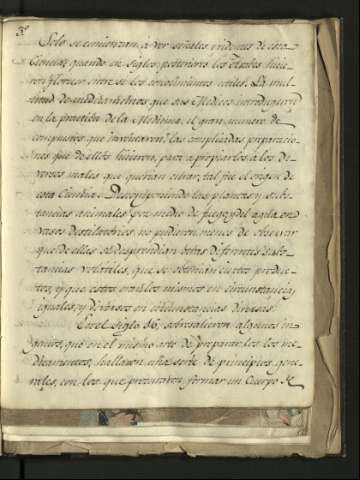 Solo se comienzan á ver señales evidentes de esta
Ciencia, quando en siglos posteriores los Arabes hicie-
ron florecer entre sí los conocimientos utiles. La mul-
titud de medicamentos que sus Medicos introdugeron
en la practica de la Medicina, el gran numero de
compuestos que inventaron, las complicadas preparacio-
nes que de ellos hicieron, para apropiarlos á los di-
versos males que querian curar, tal fue el origen de
esta Ciencia. Descomponiendo las plantas y subs-
tancias animales por medio del fuego y del agua en
vasos destilatorios no pudieron menos de observar
que de ellas se desprendian otras diferentes subs-
tancias volatiles, que se obtenian ciertos produc-
tos, y que estos eran los mismos en circunstancias
iguales, y diversos en circunstancias diversas.
En el siglo 16 sobresalieron algunos in-
genios, que en el mismo arte de preparar los me-
dicamentos, hallaron una serie de principios gene-
rales, con los que procuraron formar un Cuerpo de